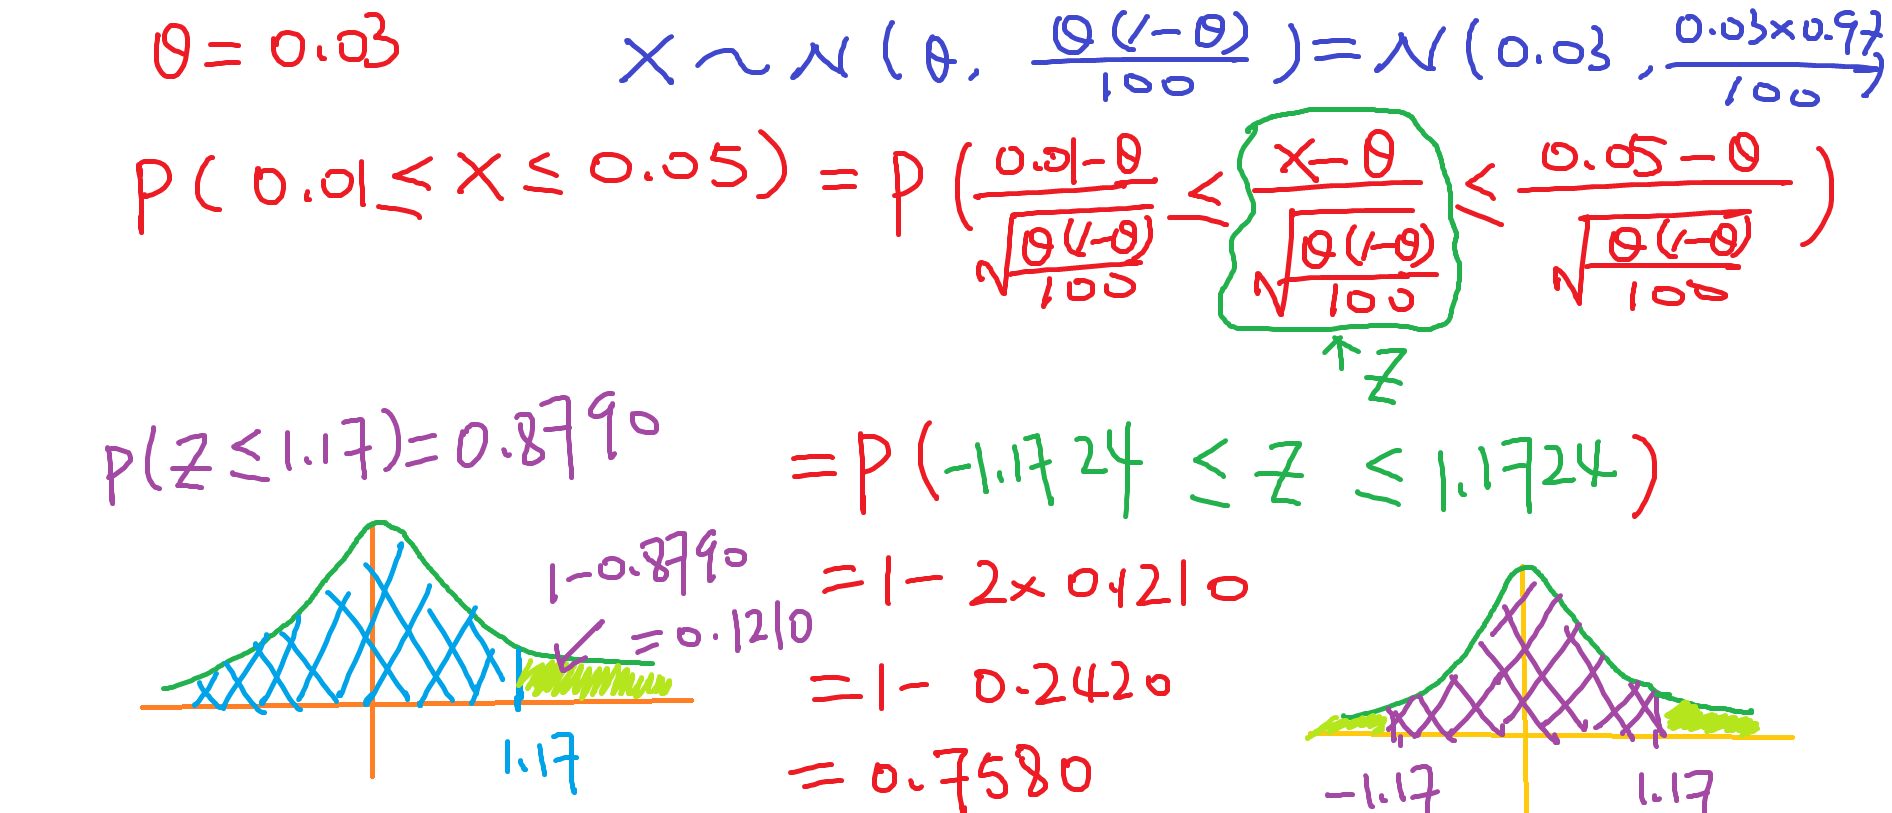 θ = 0.03
X ~ N(θ, θ(1-θ)/100) = N(0.03, 0.03×0.97/100)
P(0.01 ≤ X ≤ 0.05) = P((0.01-θ)/√(θ(1-θ)/100) ≤ (X-θ)/√(θ(1-θ)/100) ≤ (0.05-θ)/√(θ(1-θ)/100))
↑ Z
P(Z ≤ 1.17) = 0.8790
= P(-1.1724 ≤ Z ≤ 1.1724)
1-0.8790
= 0.1210
= 1 - 2×0.1210
= 1 - 0.2420
= 0.7580
1.17
-1.17
1.17